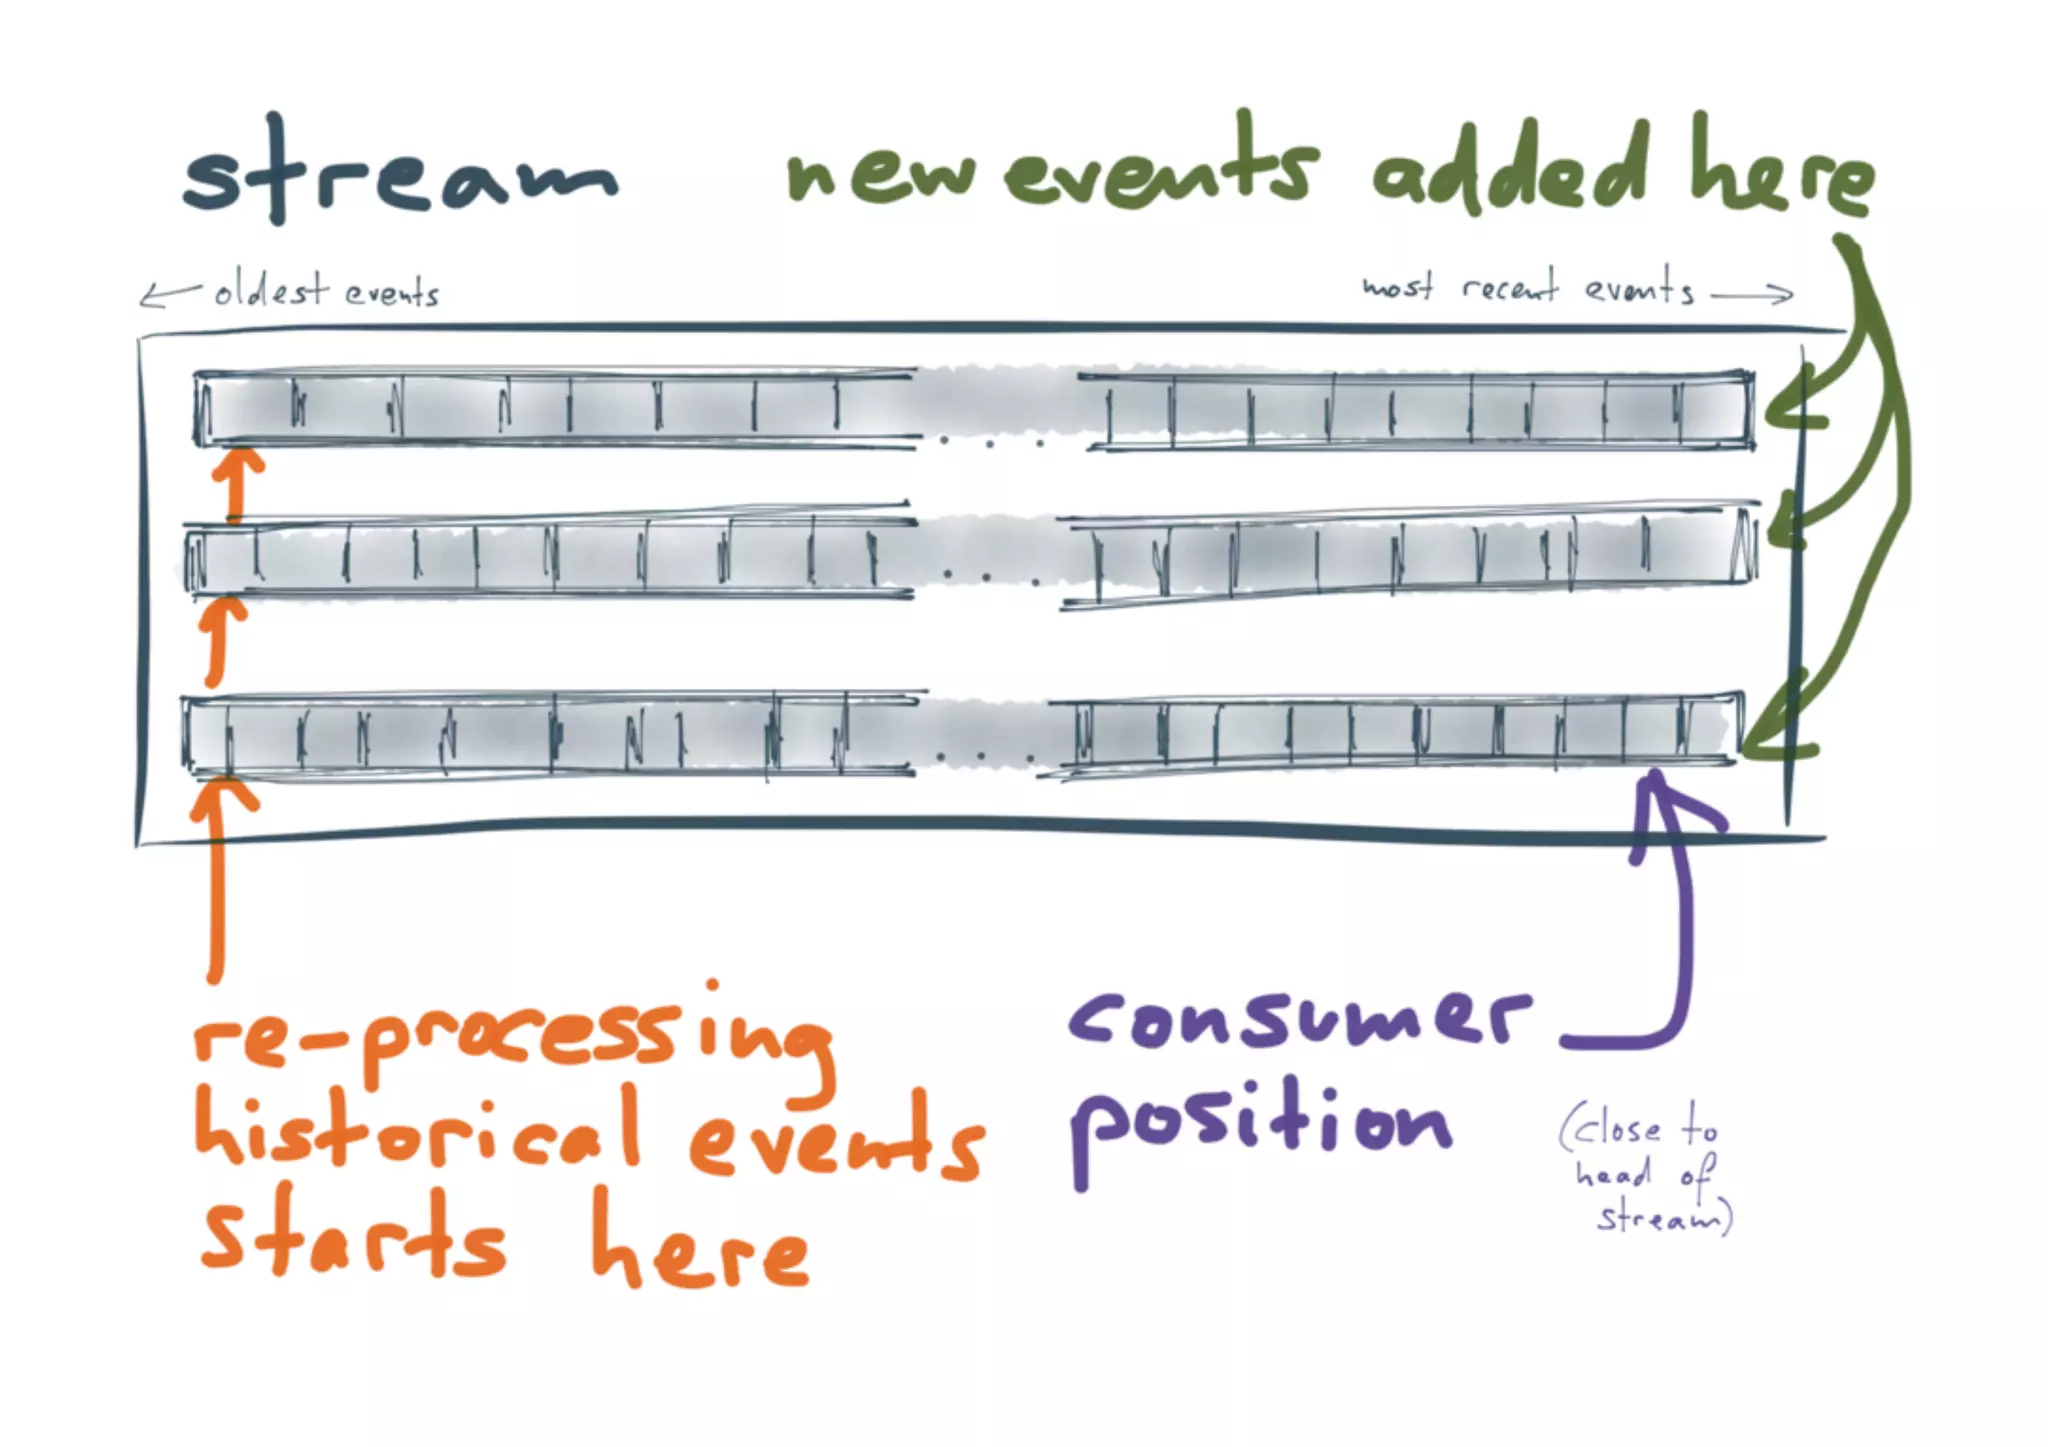 stream
new events added here
← oldest events
most recent events →
re-processing
historical events
starts here
consumer
position
(close to
head of
stream)